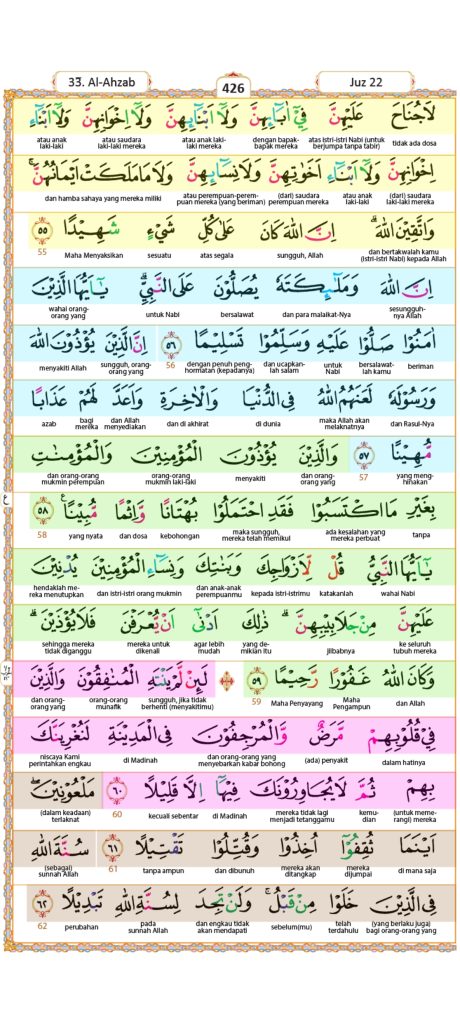 33. Al-Ahzab 426 Juz 22
لَاجُنَاحَ عَلَيْهِنَّ فِيْٓ اٰبَاۤىِٕهِنَّ وَلَآ اَبْنَاۤىِٕهِنَّ وَلَآ اِخْوَانِهِنَّ وَلَآ اَبْنَاۤءِ
tidak ada dosa atas istri-istri Nabi (untuk berjumpa tanpa tabir) dengan bapak-bapak mereka atau anak laki-laki mereka atau saudara laki-laki mereka atau anak laki-laki
اِخْوَانِهِنَّ وَلَآ اَبْنَاۤءِ اَخَوٰتِهِنَّ وَلَا نِسَاۤىِٕهِنَّ وَلَا مَا مَلَكَتْ اَيْمَانُهُنَّۚ
(dari) saudara laki-laki mereka atau anak laki-laki (dari) saudara perempuan mereka atau perempuan-perempuan mereka (yang beriman) dan hamba sahaya yang mereka miliki
وَاتَّقِيْنَ اللّٰهَ ۗ اِنَّ اللّٰهَ كَانَ عَلٰى كُلِّ شَيْءٍ شَهِيْدًا ٥٥
dan bertakwalah kamu (istri-istri Nabi) kepada Allah sungguh, Allah atas segala sesuatu Maha Menyaksikan 55
اِنَّ اللّٰهَ وَمَلٰۤىِٕكَتَهٗ يُصَلُّوْنَ عَلَى النَّبِيِّۗ يٰٓاَيُّهَا الَّذِيْنَ
sesungguh-nya Allah dan para malaikat-Nya bersalawat untuk Nabi wahai orang-orang yang
اٰمَنُوْا صَلُّوْا عَلَيْهِ وَسَلِّمُوْا تَسْلِيْمًا ٥٦ اِنَّ الَّذِيْنَ يُؤْذُوْنَ اللّٰهَ
beriman bersalawat-lah kamu untuk Nabi dan ucapkan-lah salam dengan penuh peng-hormatan (kepadanya) 56 sungguh, orang-orang yang menyakiti Allah
وَرَسُوْلَهٗ لَعَنَهُمُ اللّٰهُ فِى الدُّنْيَا وَالْاٰخِرَةِ وَاَعَدَّ لَهُمْ عَذَابًا
dan Rasul-Nya maka Allah akan melaknatnya di dunia dan di akhirat dan Allah menyediakan bagi mereka azab
مُّهِيْنًا ٥٧ وَالَّذِيْنَ يُؤْذُوْنَ الْمُؤْمِنِيْنَ وَالْمُؤْمِنٰتِ
yang meng-hinakan 57 dan orang-orang yang menyakiti orang-orang mukmin laki-laki dan orang-orang mukmin perempuan
بِغَيْرِ مَا اكْتَسَبُوْا فَقَدِ احْتَمَلُوْا بُهْتَانًا وَّاِثْمًا مُّبِيْنًا ࣖ ٥٨
tanpa ada kesalahan yang mereka perbuat maka sungguh, mereka telah memikul kebohongan dan dosa yang nyata 58
يٰٓاَيُّهَا النَّبِيُّ قُلْ لِّاَزْوَاجِكَ وَبَنٰتِكَ وَنِسَاۤءِ الْمُؤْمِنِيْنَ يُدْنِيْنَ
wahai Nabi katakanlah kepada istri-istrimu dan anak-anak perempuanmu dan istri-istri orang mukmin hendaklah me-reka menutupkan
عَلَيْهِنَّ مِنْ جَلَابِيْبِهِنَّۗ ذٰلِكَ اَدْنٰٓى اَنْ يُّعْرَفْنَ فَلَا يُؤْذَيْنَۗ
ke seluruh tubuh mereka jilbabnya yang de-mikian itu agar lebih mudah mereka untuk dikenali sehingga mereka tidak diganggu
وَكَانَ اللّٰهُ غَفُوْرًا رَّحِيْمًا ٥٩ لَىِٕنْ لَّمْ يَنْتَهِ الْمُنٰفِقُوْنَ وَالَّذِيْنَ
dan Allah Maha Pengampun Maha Penyayang 59 sungguh, jika tidak berhenti (menyakitimu) orang-orang munafik dan orang-orang yang
فِيْ قُلُوْبِهِمْ مَّرَضٌ وَّالْمُرْجِفُوْنَ فِى الْمَدِيْنَةِ لَنُغْرِيَنَّكَ
dalam hatinya (ada) penyakit dan orang-orang yang menyebarkan kabar bohong di Madinah niscaya Kami perintahkan engkau
بِهِمْ ثُمَّ لَا يُجَاوِرُوْنَكَ فِيْهَآ اِلَّا قَلِيْلًا ٦٠ مَلْعُوْنِيْنَۖ
(untuk meme-rangi) mereka kemu-dian mereka tidak lagi menjadi tetanggamu di Madinah kecuali sebentar 60 (dalam keadaan) terlaknat
اَيْنَمَا ثُقِفُوْٓا اُخِذُوْا وَقُتِّلُوْا تَقْتِيْلًا ٦١ سُنَّةَ اللّٰهِ
di mana saja mereka dijumpai mereka akan ditangkap dan dibunuh tanpa ampun 61 (sebagai) sunnah Allah
فِى الَّذِيْنَ خَلَوْا مِنْ قَبْلُۚ وَلَنْ تَجِدَ لِسُنَّةِ اللّٰهِ تَبْدِيْلًا ٦٢
(yang berlaku juga) bagi orang-orang yang telah terdahulu sebelum(mu) dan engkau tidak akan mendapati pada sunnah Allah perubahan 62